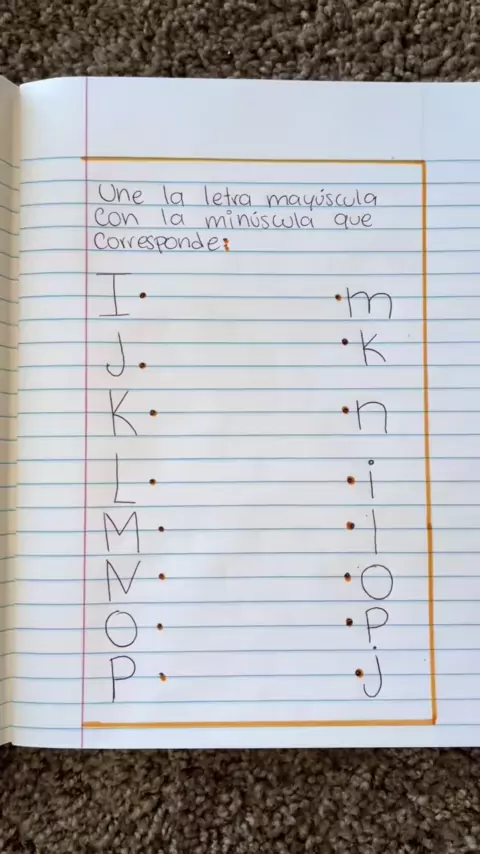 Une la letra mayúscula
con la minúscula que
corresponde:
I • • m
J • • k
K • • n
L • • i
M • • l
N • • o
O • • p
P • • j